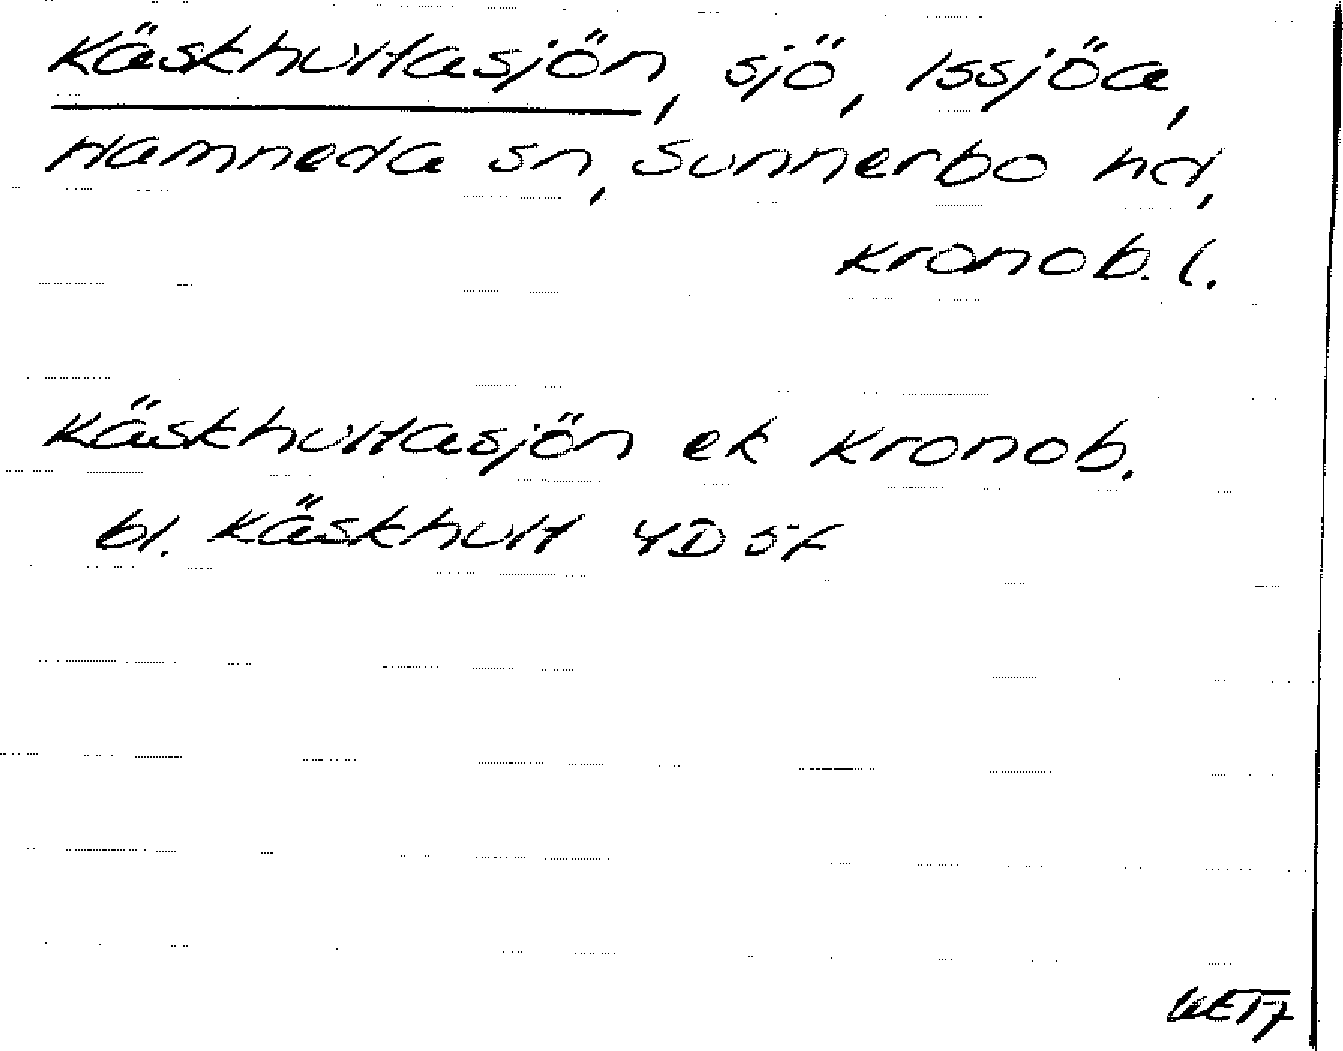 Käskhultasjön, sjö, Issjöa,
Hamneda sn, Sunnerbo hd,
Kronob. l.
Käskhultasjön ek Kronob.
bl. Käskhult 4D 5f